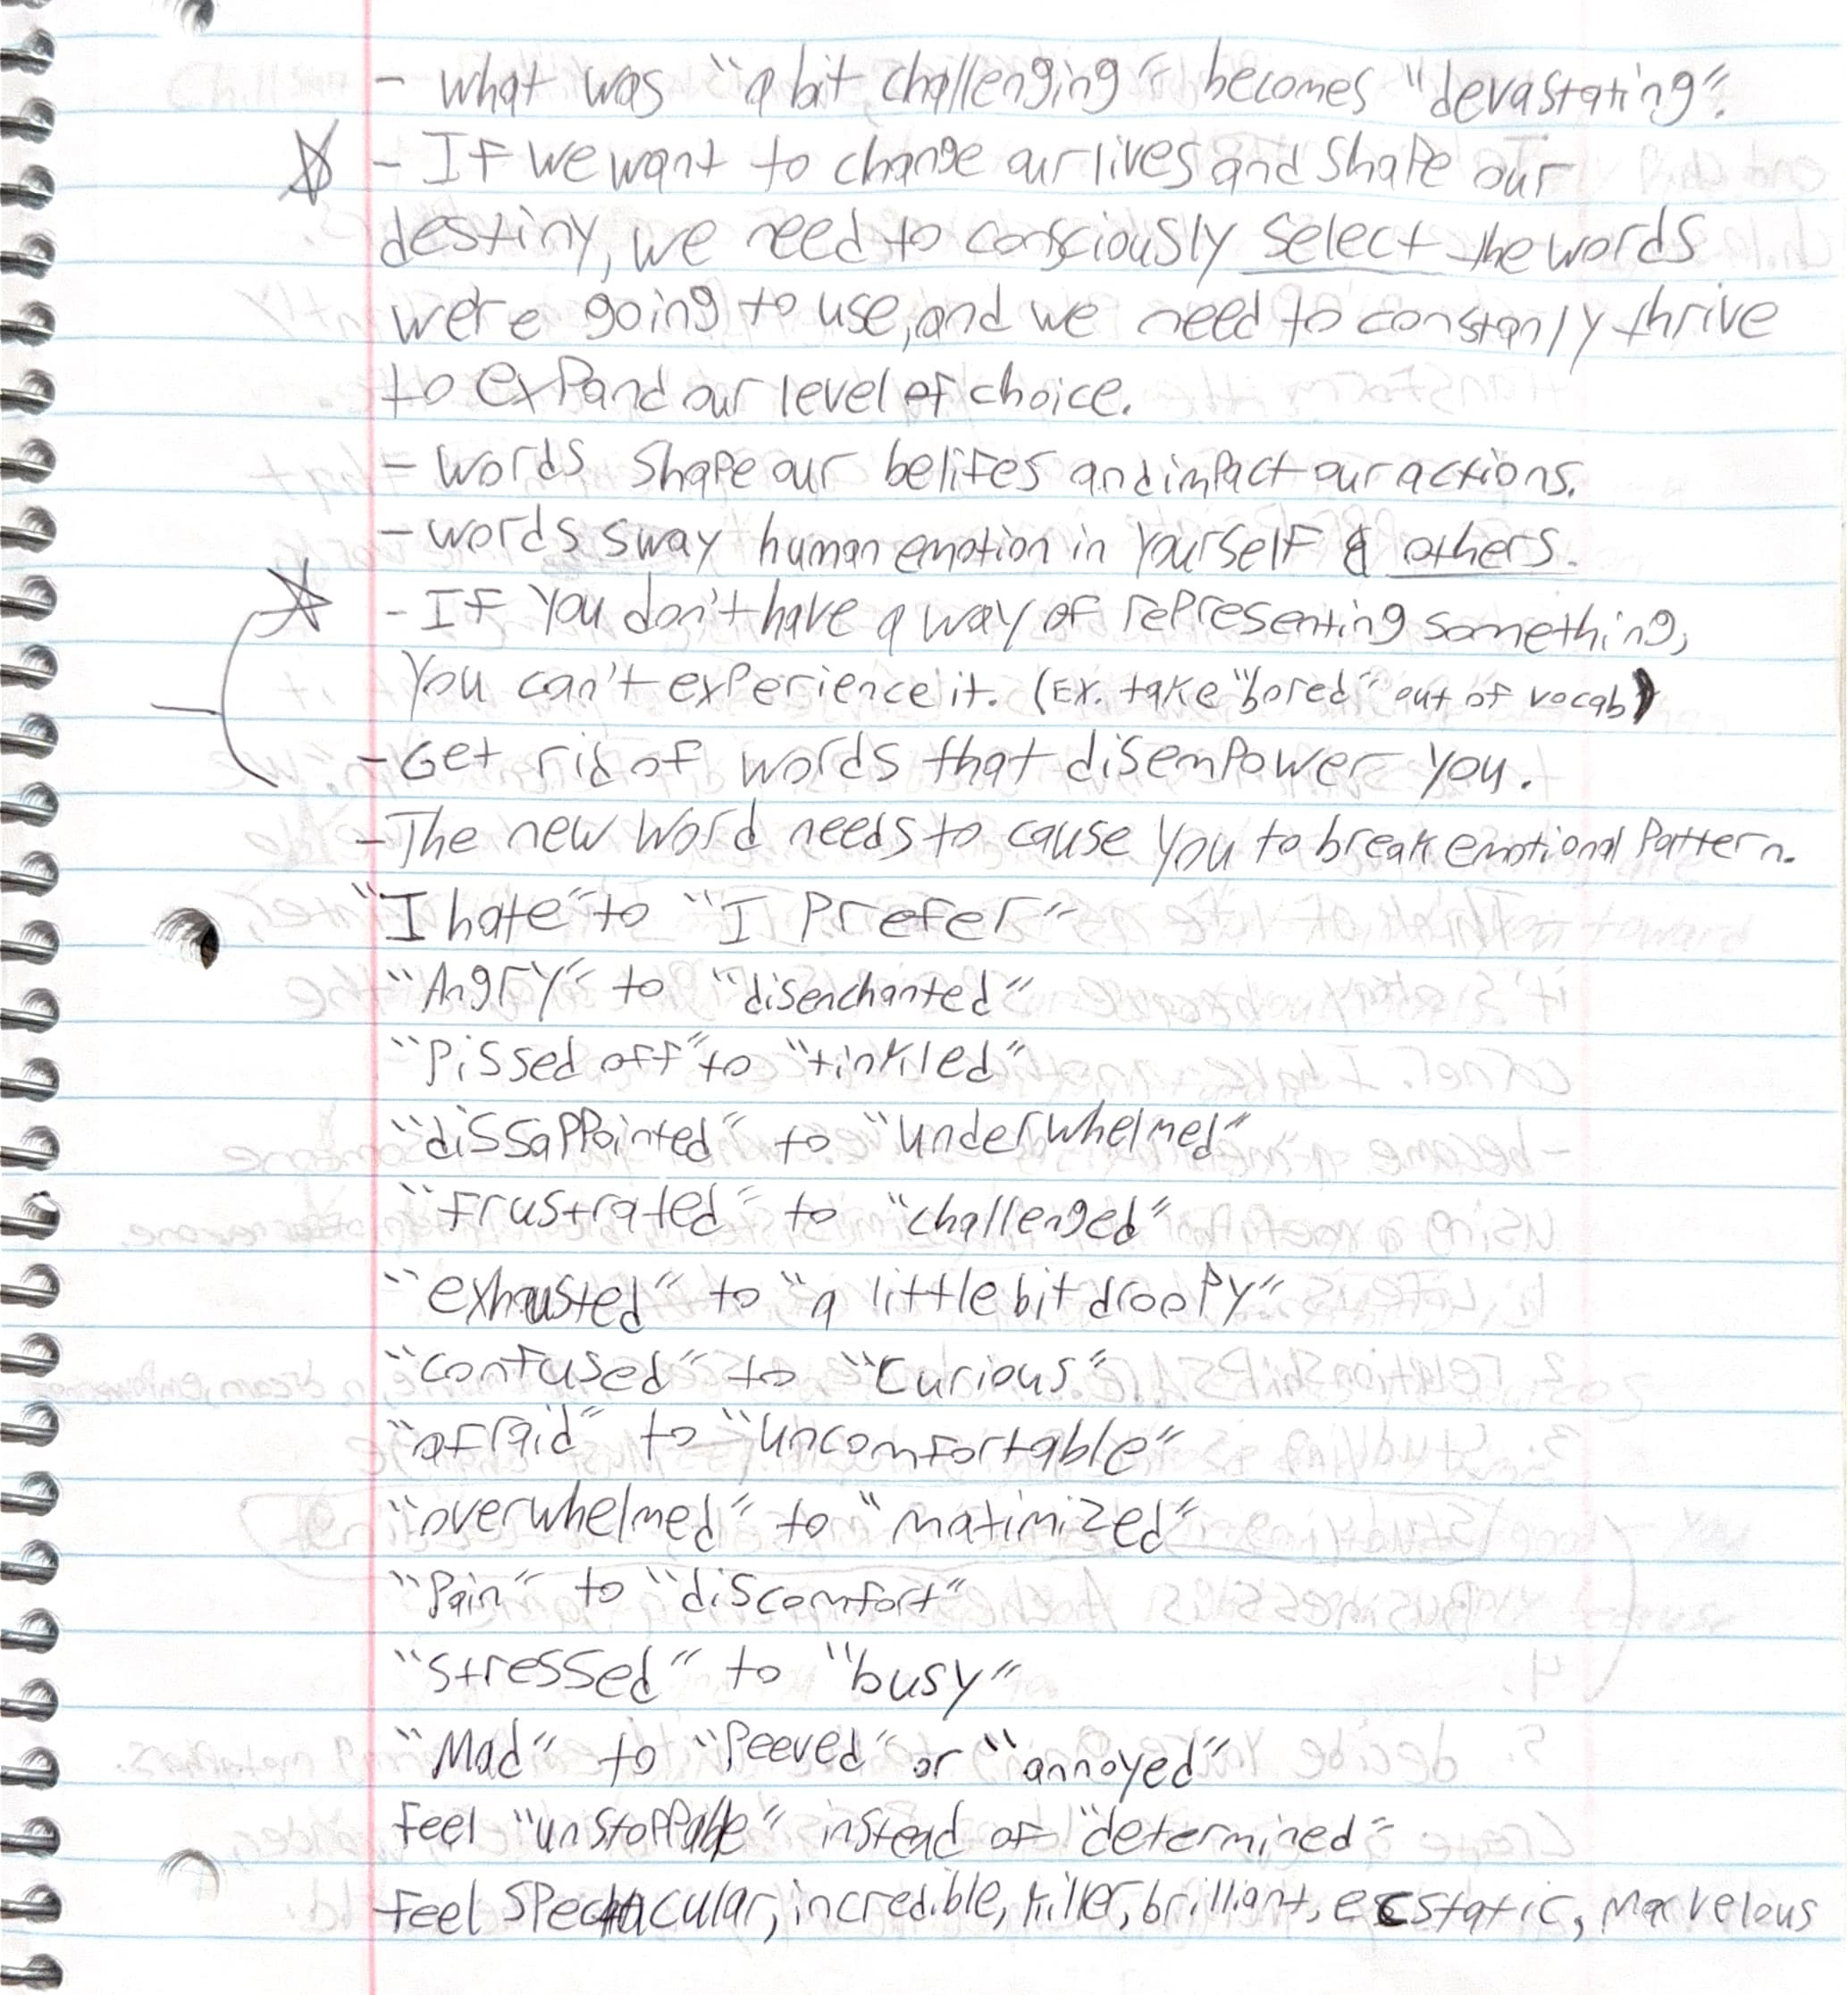 - what was "a bit challenging" becomes "devastating".
- If we want to change our lives and shape our
destiny, we need to consciously select the words
we're going to use, and we need to constanly thrive
to expand our level of choice.
- words shape our belifes and impact our actions.
- words sway human emotion in yourself & others.
- If you don't have a way of representing something,
You can't experience it. (Ex. take "bored" out of vocab)
- Get rid of words that disempower you.
- The new word needs to cause you to break emotional pattern.
"I hate" to "I prefer"
"Angry" to "disenchanted"
"Pissed off" to "tinkled"
"dissappointed" to "underwhelmed"
"frustrated" to "challenged"
"exhausted" to "a little bit droopy"
"confused" to "curious"
"afraid" to "uncomfortable"
"overwhelmed" to "maximized"
"Pain" to "discomfort"
"stressed" to "busy"
"Mad" to "Peeved" or "annoyed"
feel "unstoppable" instead of "determined"
feel spectacular, incredible, killer, brilliant, ecstatic, marvelous